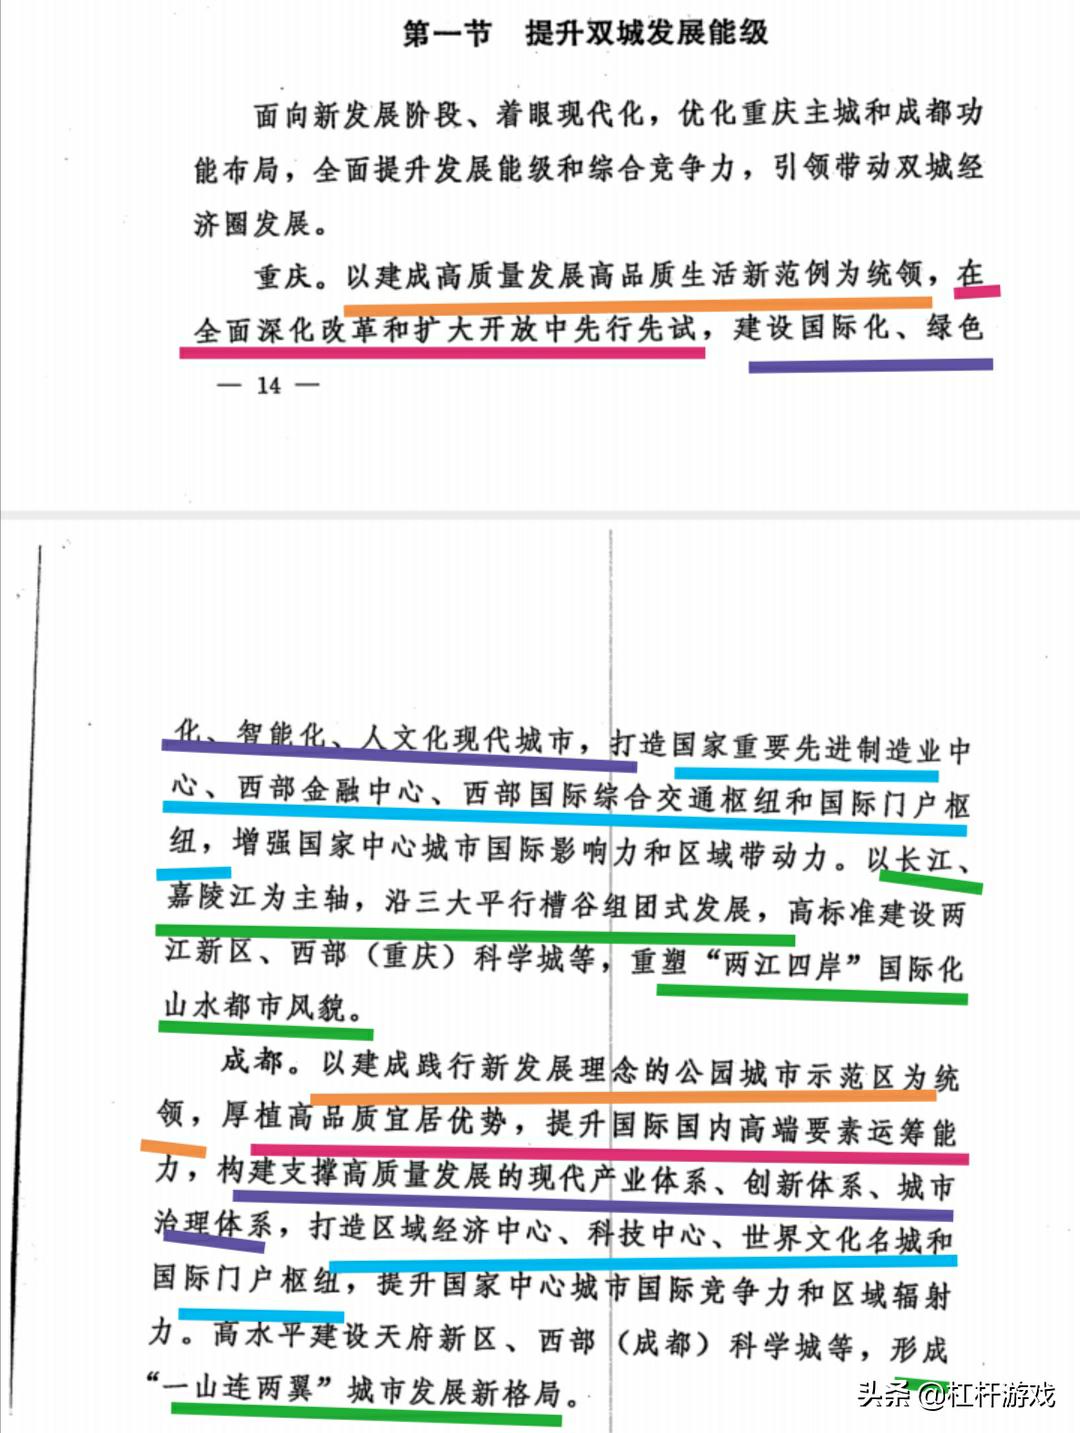 第一节　提升双城发展能级
面向新发展阶段、着眼现代化，优化重庆主城和成都功
能布局，全面提升发展能级和综合竞争力，引领带动双城经
济圈发展。
重庆。以建成高质量发展高品质生活新范例为统领，在
全面深化改革和扩大开放中先行先试，建设国际化、绿色
— 14 —
化、智能化、人文化现代城市，打造国家重要先进制造业中
心、西部金融中心、西部国际综合交通枢纽和国际门户枢
纽，增强国家中心城市国际影响力和区域带动力。以长江、
嘉陵江为主轴，沿三大平行槽谷组团式发展，高标准建设两
江新区、西部（重庆）科学城等，重塑“两江四岸”国际化
山水都市风貌。
成都。以建成践行新发展理念的公园城市示范区为统
领，厚植高品质宜居优势，提升国际国内高端要素运筹能
力，构建支撑高质量发展的现代产业体系、创新体系、城市
治理体系，打造区域经济中心、科技中心、世界文化名城和
国际门户枢纽，提升国家中心城市国际竞争力和区域辐射
力。高水平建设天府新区、西部（成都）科学城等，形成
“一山连两翼”城市发展新格局。
头条 @杠杆游戏